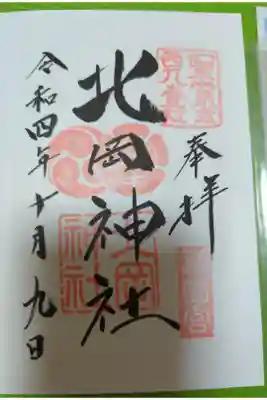 奉拝
北岡神社
令和四年十月九日